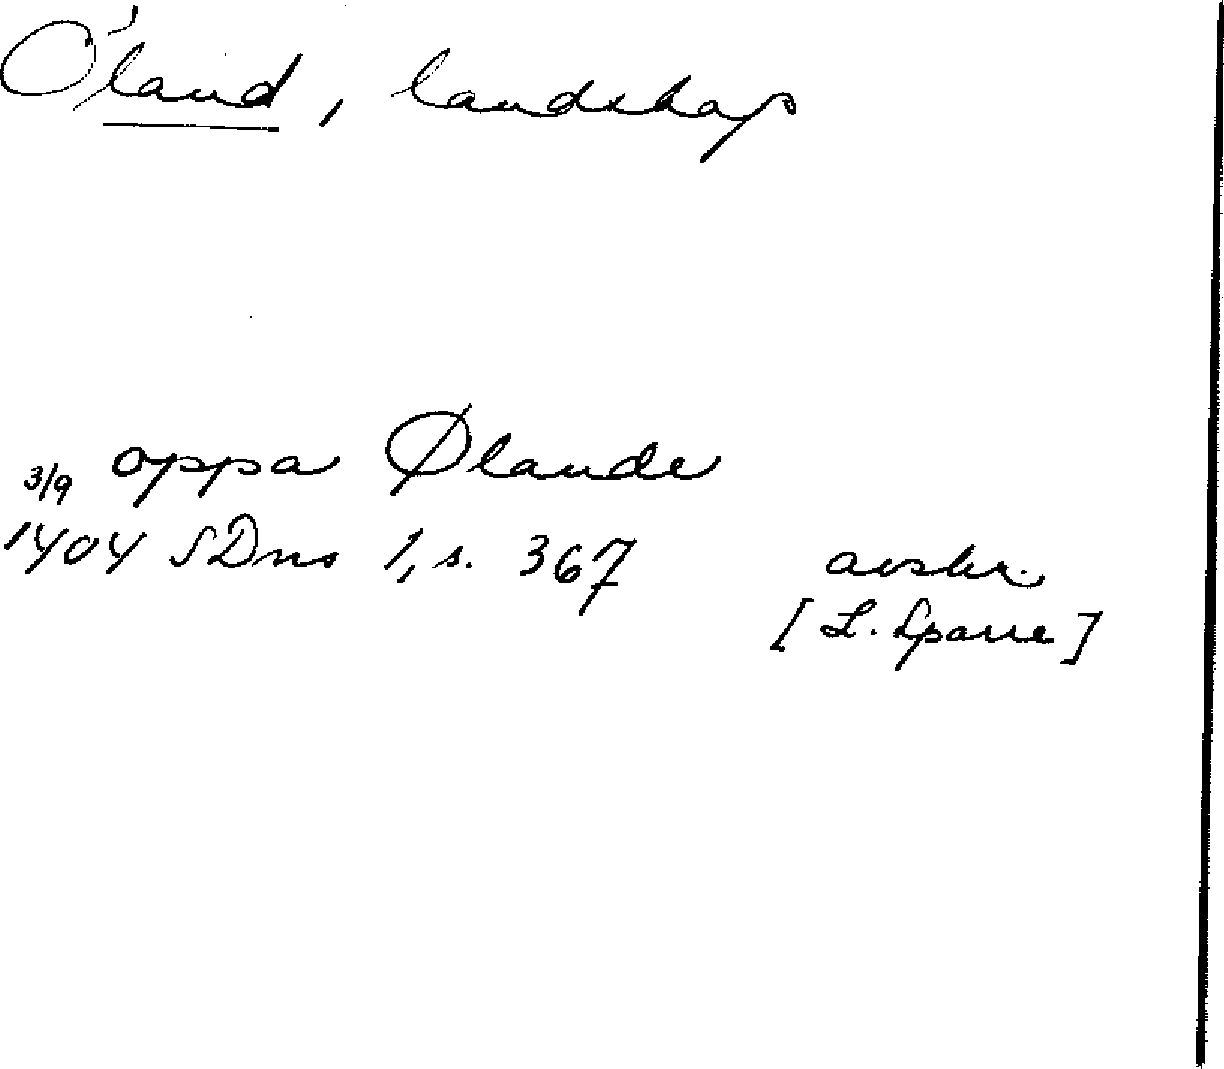 Öland, landskap
oppa Ølande
3/9
1404 SDns 1, s. 367 avskr.
[L. Sparre]